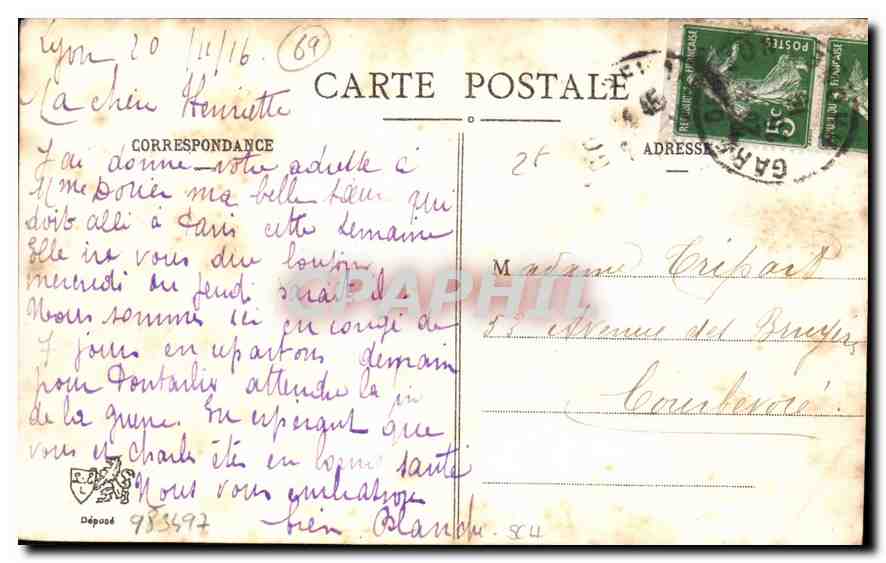 Lyon 20/11/16 69
Ma chère Henriette
CARTE POSTALE
CORRESPONDANCE
J'ai donne votre adresse à
Mme Dorier ma belle sœur qui
doit allé à Paris cette semaine
Elle ira vous dire bonjour
mercredi ou jeudi
Nous sommes ici en congé de
7 jours en repartons demain
pour Pontarlier attendre la fin
de la guerre. En esperant que
vous et Charles étes en bonne santé
Nous vous embrassons
bien Blanche
Déposé
983497
SC4
2f
ADRESSE
Madame Tripard
53 Avenue des Bruyères
Courbevoie
REPUBLIQUE FRANÇAISE
POSTES
5c
GARE
CPAPHIL